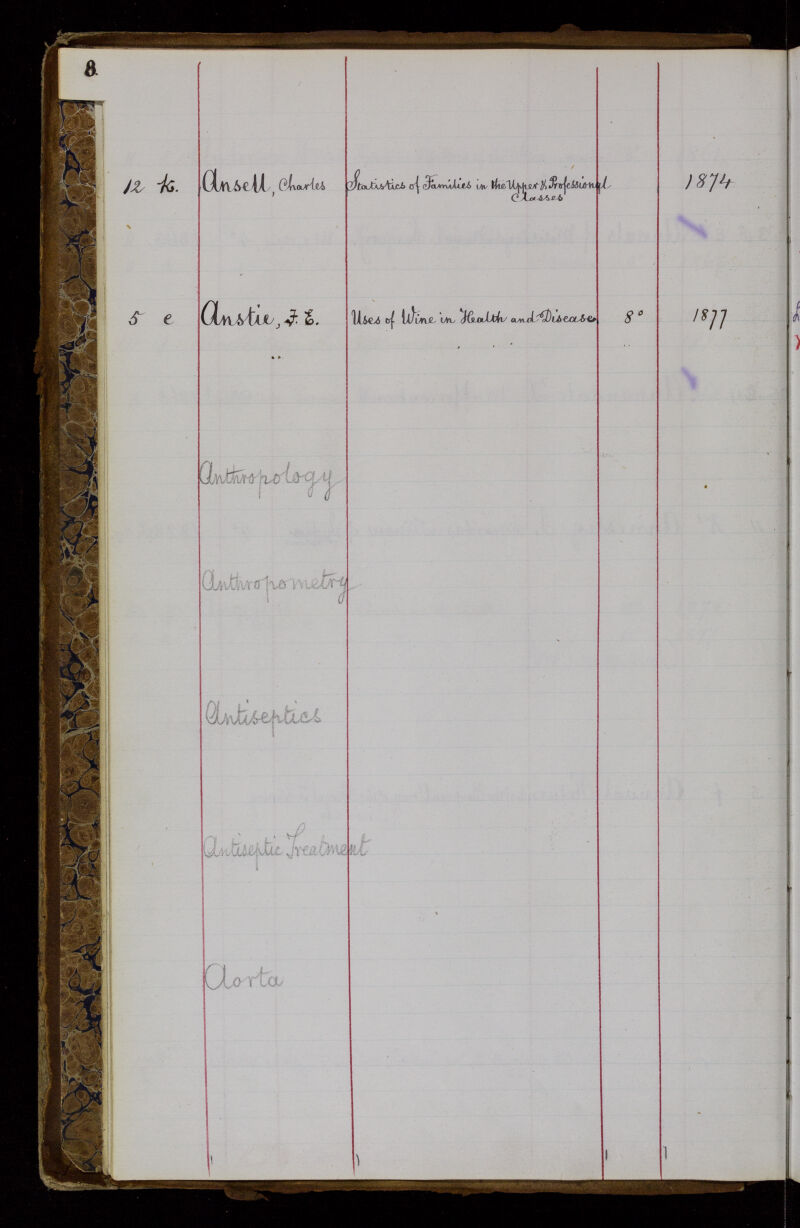 8
12 k. Ansell, Charles Statistics of Families in the Upper & Professional 1874
Classes
5 e Anstie, F. E. Uses of Wine in Health and Disease 8° 1877
Anthropology
Anthropometry
Antiseptics
Antiseptic Treatment
Aorta